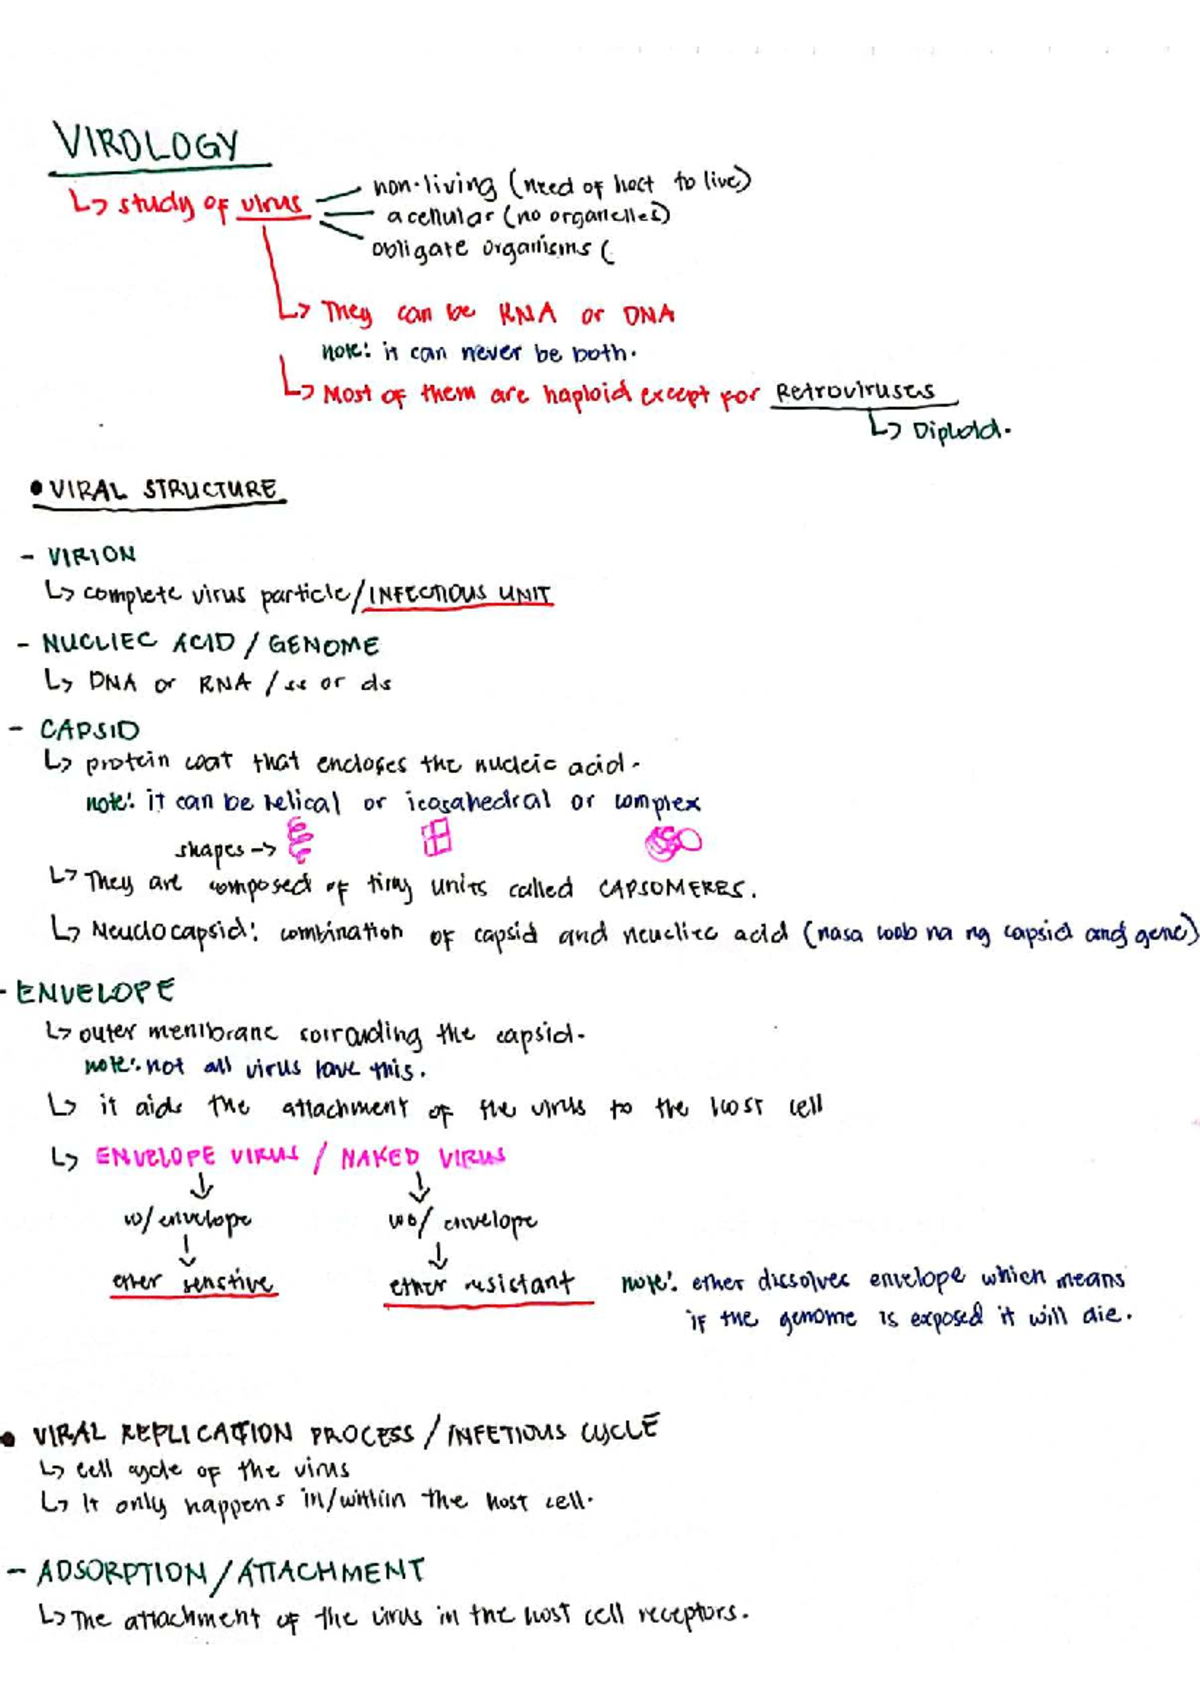 VIROLOGY
↳ study of virus
non-living (need of host to live)
acellular (no organelles)
obligate organisms (
↳ They can be RNA or DNA
note: it can never be both.
↳ Most of them are haploid except for Retroviruses
↳ Diploid.
• VIRAL STRUCTURE
- VIRION
↳ complete virus particle/INFECTIOUS UNIT
- NUCLIEC ACID / GENOME
↳ DNA or RNA / ss or ds
- CAPSID
↳ protein coat that encloses the nucleic acid.
note: it can be helical or icosahedral or complex
shapes →
↳ They are composed of tiny units called CAPSOMERES.
↳ Neuclocapsid: combination of capsid and neucliec acid (nasa loob na ng capsid ang gene)
- ENVELOPE
↳ outer membrane sorrouding the capsid.
note: not all virus have this.
↳ it aids the attachment of the virus to the host cell
↳ ENVELOPE VIRUS / NAKED VIRUS
w/ envelope wo/ envelope
ether senstive ether resistant note: ether dissolves envelope which means
if the genome is exposed it will die.
• VIRAL REPLICATION PROCESS / INFETIOUS CYCLE
↳ cell cycle of the virus
↳ It only happens in/within the host cell.
- ADSORPTION / ATTACHMENT
↳ The attachment of the virus in the host cell receptors.